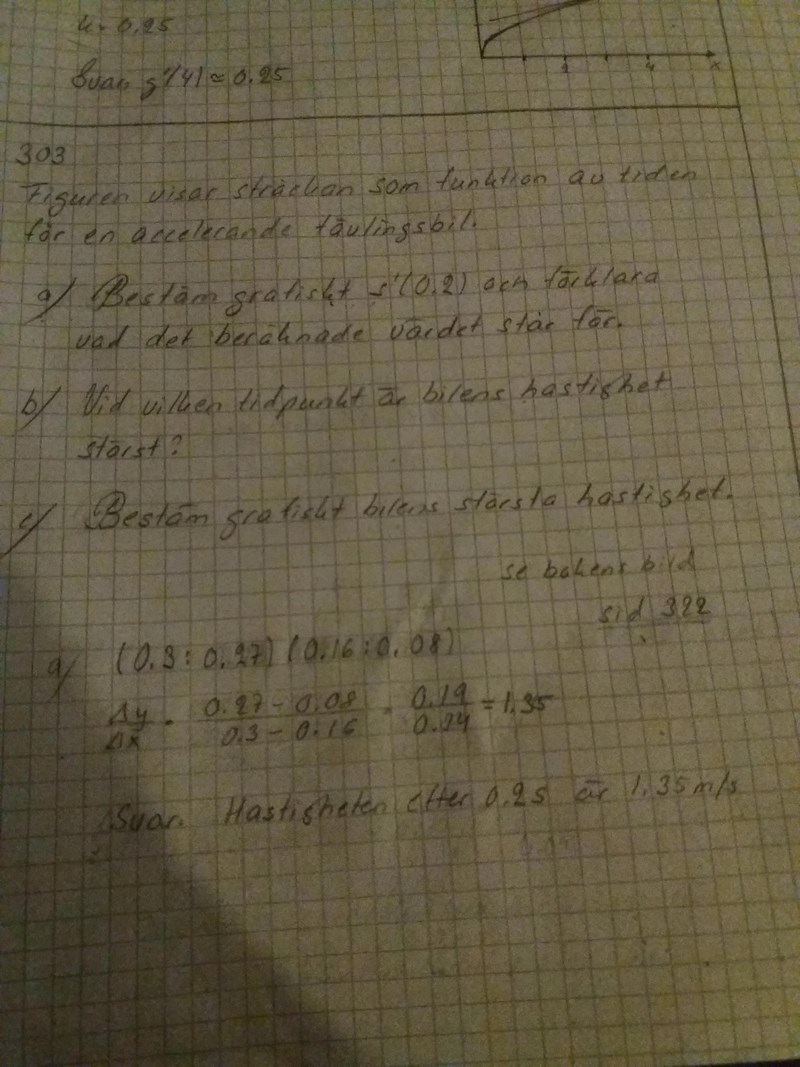 k= 0.25
Svar g'(4) ≈ 0.25
2 4 x
303
Figuren visar sträckan som funktion av tiden
för en accelerande tävlingsbil.
a) Bestäm grafiskt s'(0.2) och förklara
vad det beräknade värdet står för.
b) Vid vilken tidpunkt är bilens hastighet
störst?
c) Bestäm grafiskt bilens största hastighet.
se bokens bild
sid 322
a) (0.3 : 0.27) (0.16 : 0.08)
Δy/Δx = (0.27 - 0.08)/(0.3 - 0.16) = 0.19/0.14 = 1.35
Svar. Hastigheten efter 0.2s är 1.35 m/s